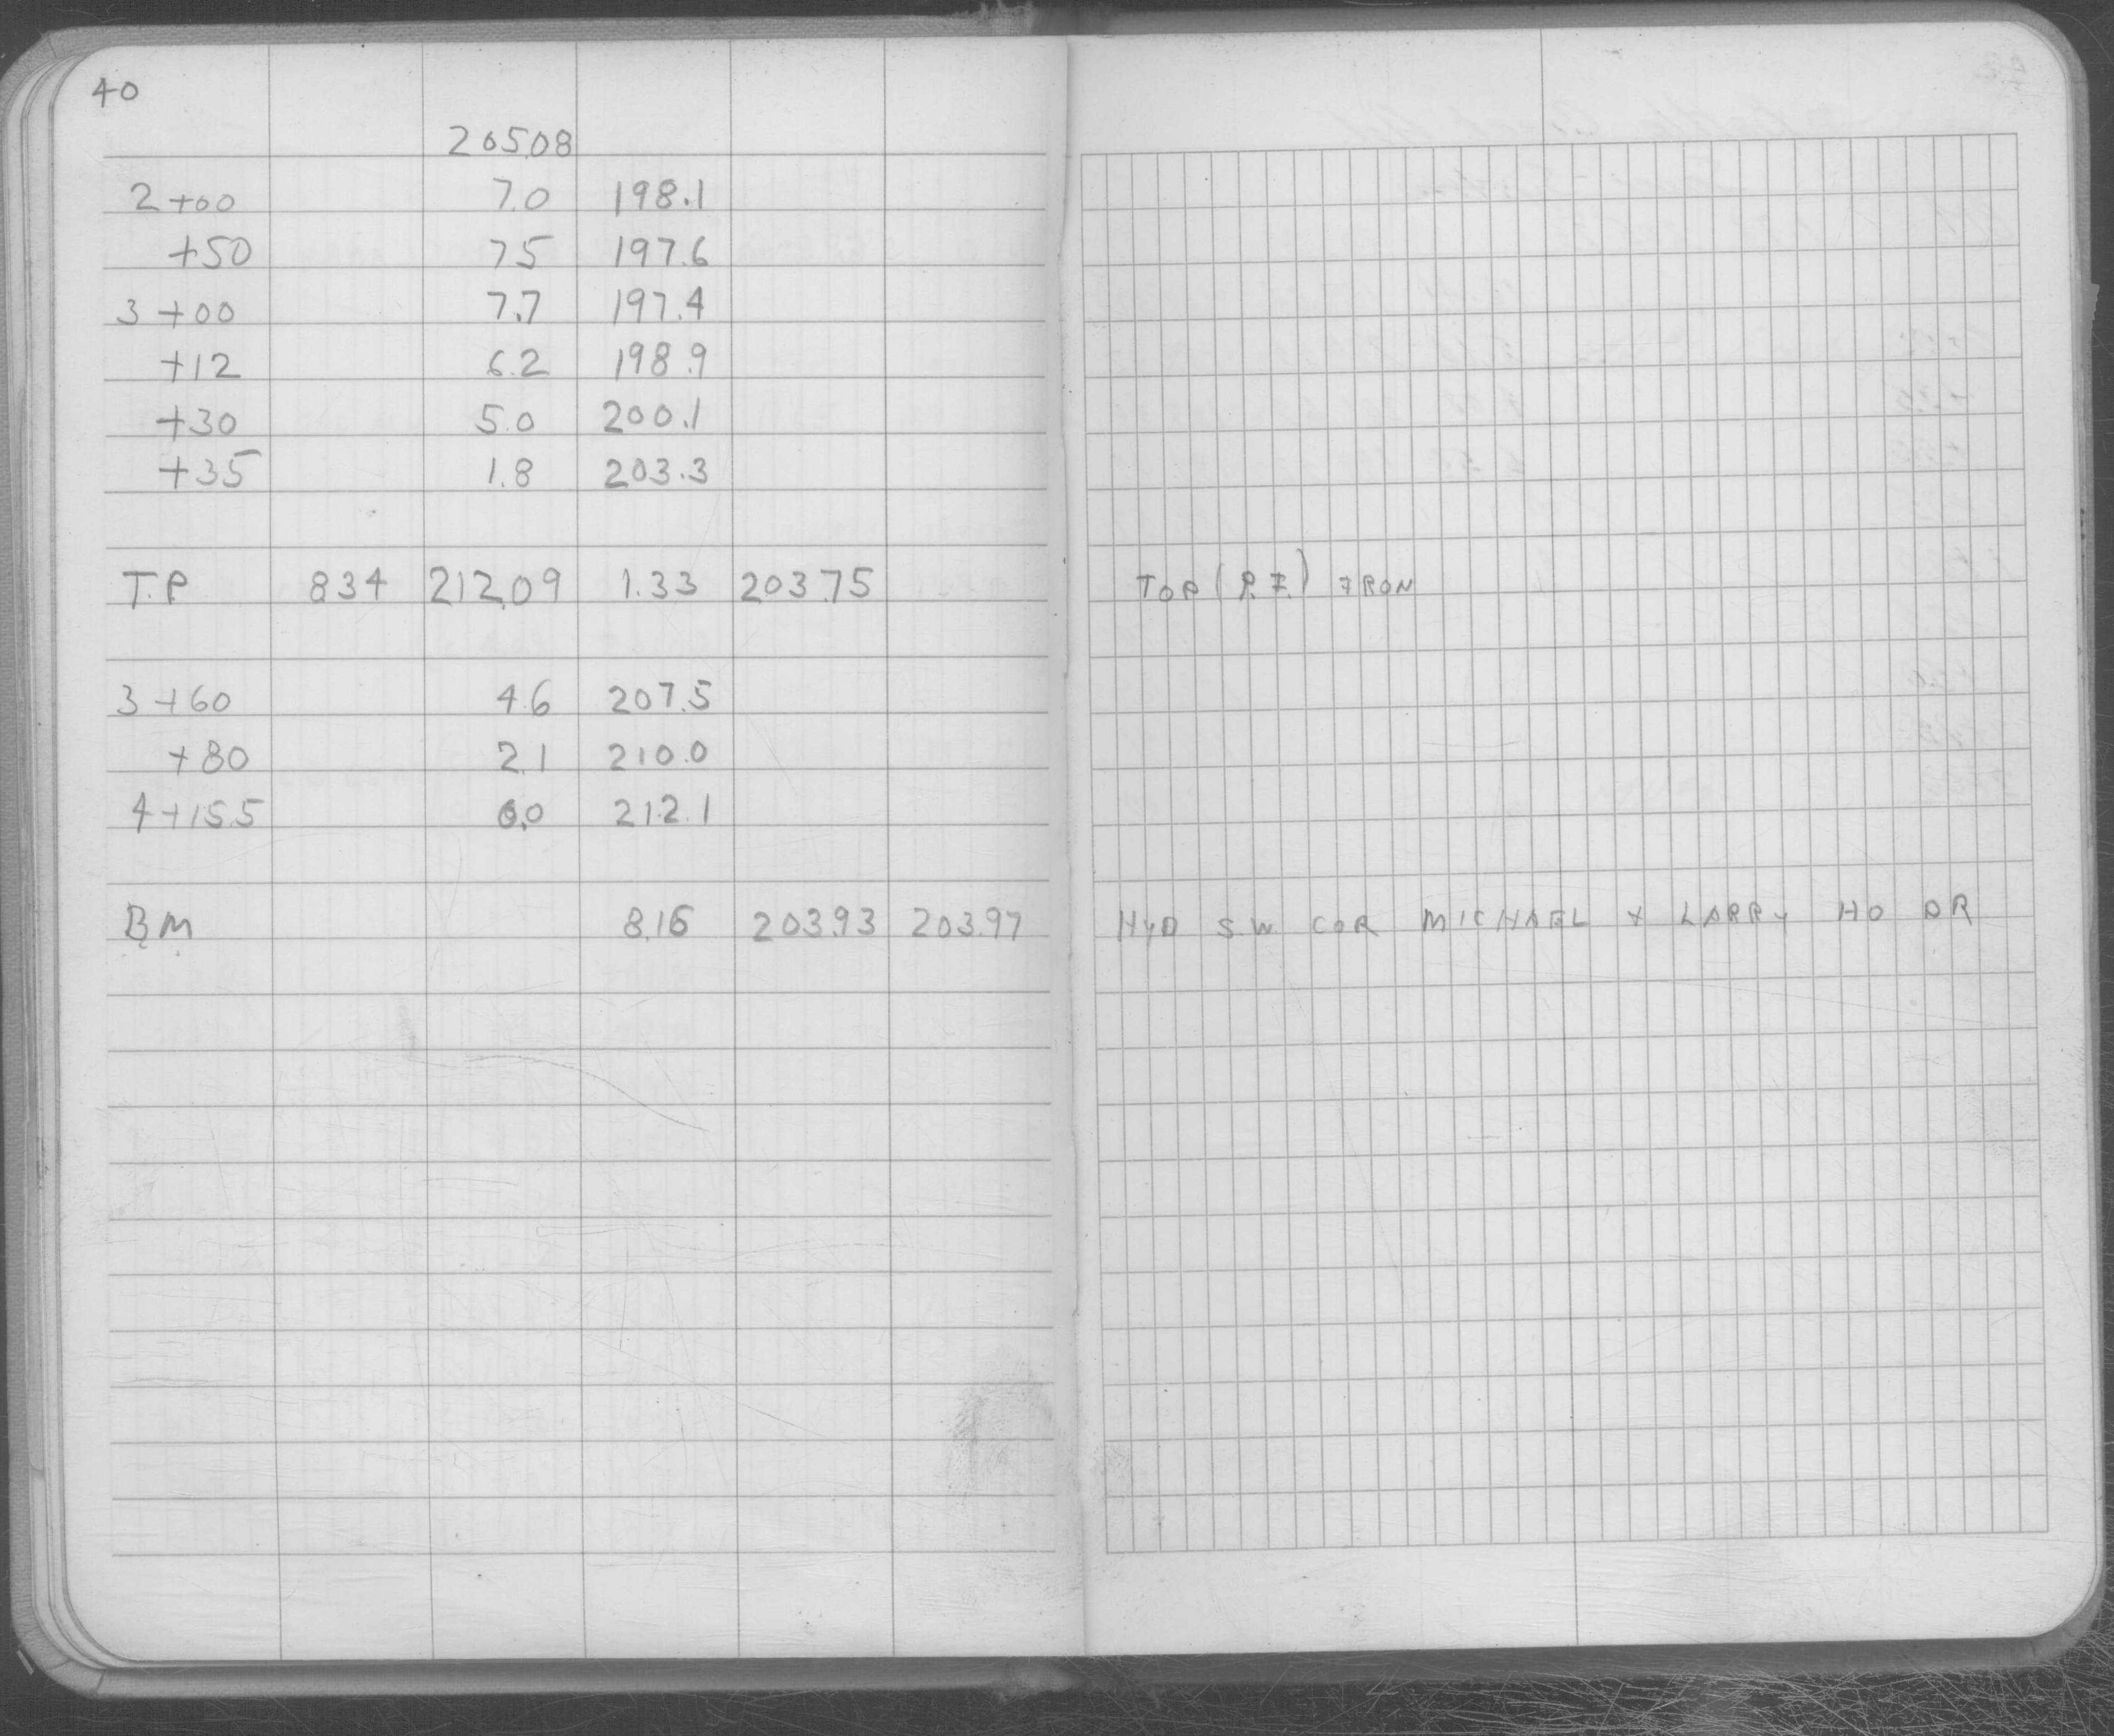 40
205.08
2+00 7.0 198.1
+50 7.5 197.6
3+00 7.7 197.4
+12 6.2 198.9
+30 5.0 200.1
+35 1.8 203.3
T.P. 8.34 212.09 1.33 203.75 TOP (P.I.) IRON
3+60 4.6 207.5
+80 2.1 210.0
4+15.5 0.0 212.1
BM 8.16 203.93 203.97 HYD S.W COR MICHAEL + LARRY HO DR